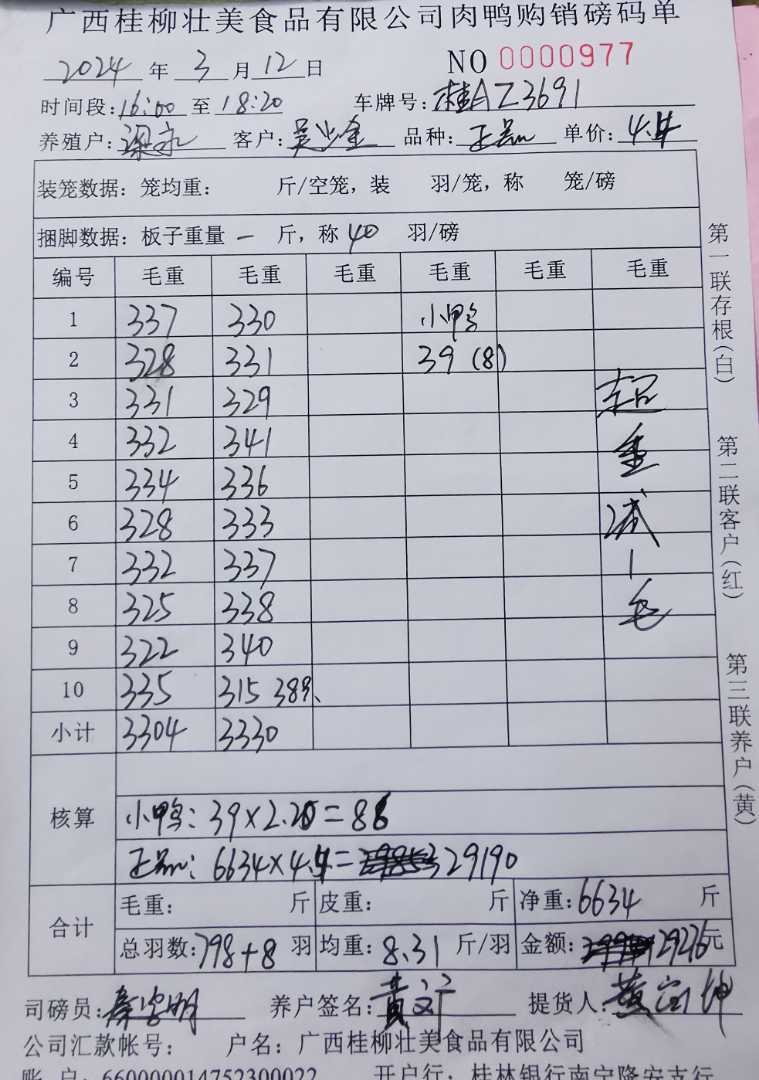 广西桂柳壮美食品有限公司肉鸭购销磅码单
2024 年 3 月 12 日 NO 0000977
时间段: 16:00 至 18:20 车牌号: 桂AZ3691
养殖户: 梁永 客户: 吴少金 品种: 正品 单价: 4.4
装笼数据: 笼均重: 斤/空笼, 装 羽/笼, 称 笼/磅
捆脚数据: 板子重量 一 斤, 称 40 羽/磅
编号 毛重 毛重 毛重 毛重 毛重 毛重
1 337 330 小鸭
2 328 331 39 (8)
3 331 329 超
4 332 341 重
5 334 336
6 328 333 减
7 332 337 1
8 325 338 毛
9 322 340
10 335 315 38羽
小计 3304 3330
核算
小鸭: 39×2.20=86
正品: 6634×4.4= 29190
合计 毛重: 斤 皮重: 斤 净重: 6634 斤
总羽数: 798+8 羽 均重: 8.31 斤/羽 金额: 29276 元
司磅员: 养户签名: 提货人: 黄
公司汇款帐号: 户名: 广西桂柳壮美食品有限公司
账 户: 660000014752300022 开户行: 桂林银行南宁隆安支行
第一联存根(白)
第二联客户(红)
第三联养户(黄)